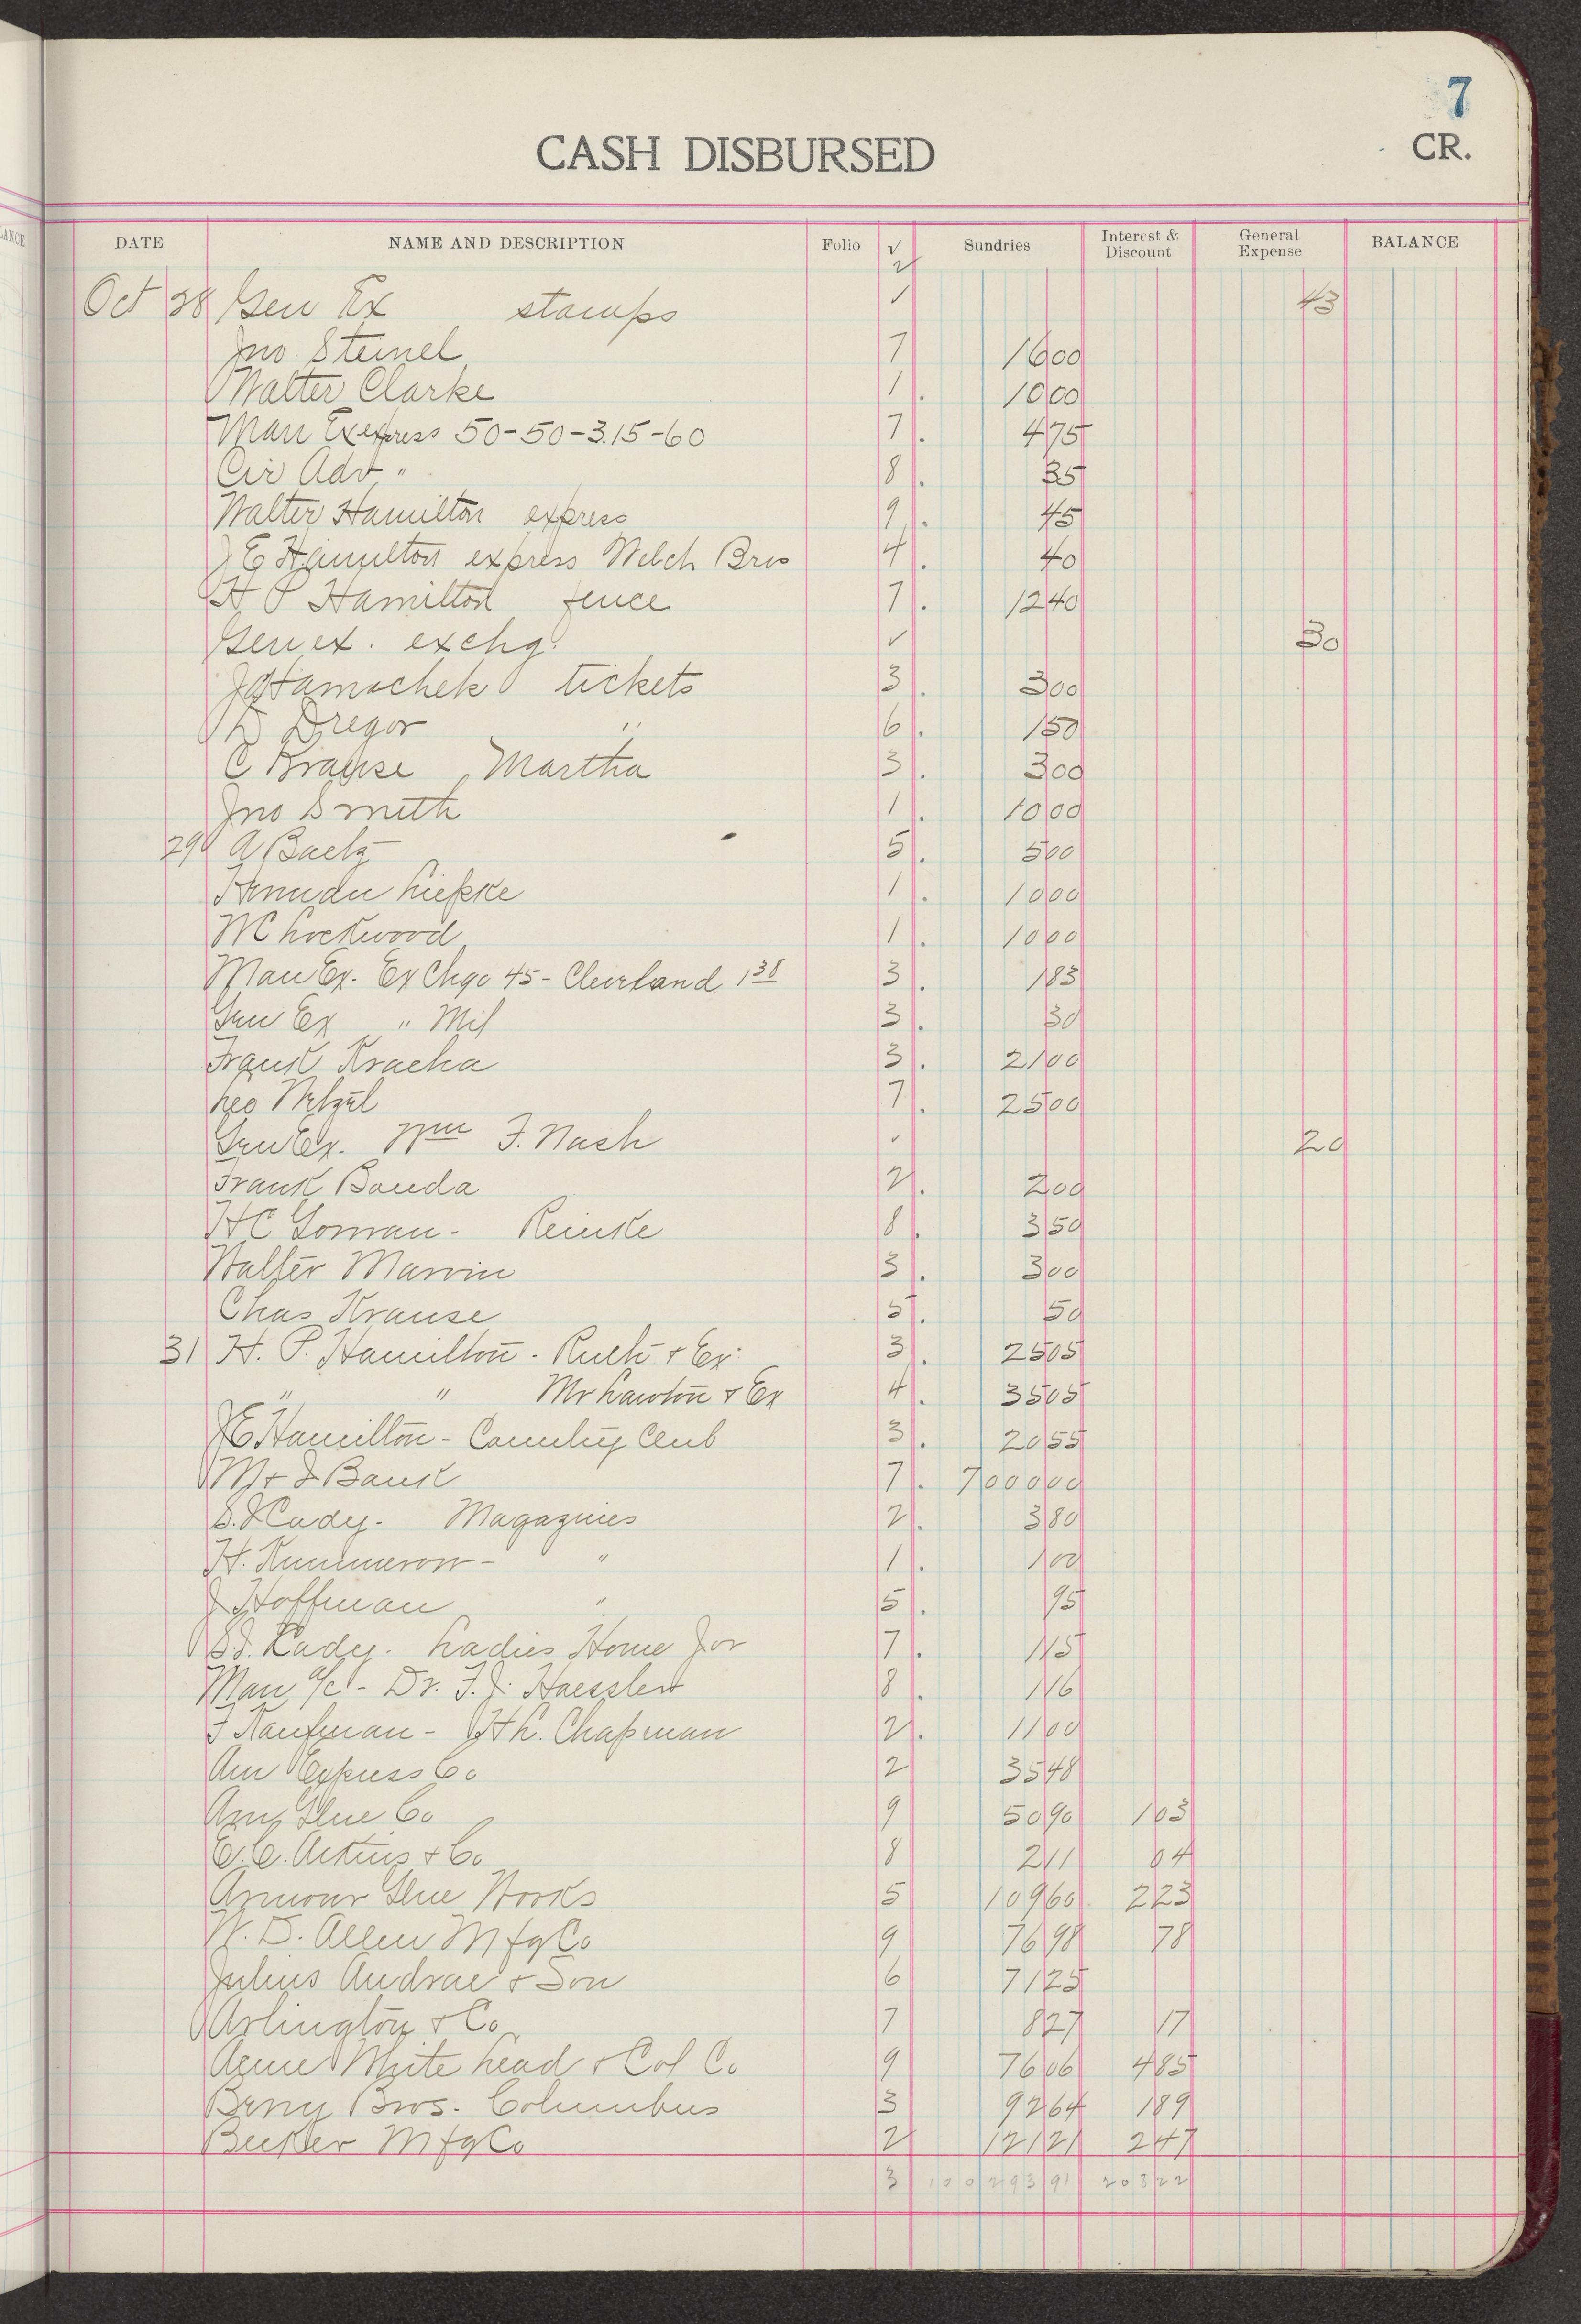 7
CASH DISBURSED
CR.
DATE NAME AND DESCRIPTION Folio √ Sundries Interest & Discount General Expense BALANCE
2
Oct 28 Gen Ex stamps ✓ 43
Jno. Steinel 7 16 00
Walter Clarke 1 . 10 00
Man Ex express 50-50-3.15-60 7 . 4 75
Cir Adv " 8 . 35
Walter Hamilton express 9 . 45
J E Hamilton express Welch Bros 4 . 40
H P Hamilton fence 7 . 12 40
Gen ex. exchg. ✓ 30
J Hamachek tickets 3 . 3 00
Dregor " 6 . 1 50
C Krause Martha 3 . 3 00
Jno Smith 1 . 10 00
29 A Baetz 5 . 5 00
Herman Liepke 1 . 10 00
W C Lockwood 1 . 10 00
Man Ex. Ex Chge 45 - Cleveland 1 38 3 . 1 83
Gen Ex " Mil 3 . 30
Frank Kracha 3 . 21 00
Leo Wetzel 7 . 25 00
Gen Ex. Wm F. Nash ✓ 20
Frank Bouda 2 . 2 00
H C Gorman - Reinke 8 . 3 50
Walter Marvin 3 . 3 00
Chas Krause 5 . 50
31 H. P. Hamilton - Ruth & Ex. 3 . 25 05
" " Mr Lawton & Ex 4 . 35 05
J E Hamilton - Country Club 3 . 20 55
M & I Bank 7 . 7000 00
S. J Cady - Magazines 2 . 3 80
H. Kummerow - " 1 . 1 00
J Hoffman " 5 . 95
S. J. Kady. Ladies Home Jor 7 . 1 15
Man a/c - Dr. F. J. Haessler 8 . 1 16
F Kaufman - H L. Chapman 2 . 11 00
Am Express Co 2 35 48
Am Glue Co 9 50 90 1 03
E. C. Atkins & Co 8 2 11 04
Armour Glue Works 5 109 60 2 23
W. D. Allen Mfg Co 9 76 98 78
Julius Andrae & Son 6 71 25
Arlington & Co 7 8 27 17
Acme White Lead & Col Co 9 76 06 4 85
Berry Bros. Columbus 3 92 64 1 89
Becker Mfg Co 2 121 21 2 47
3 100293 91 208 22